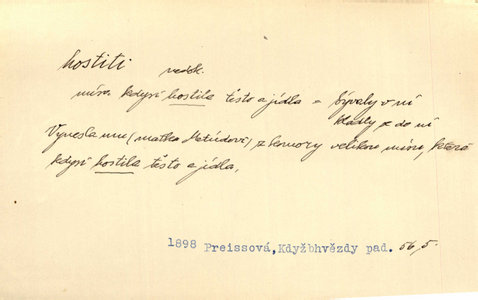 hostiti nedok.
mísa kdysi hostila těsto a jídla = bývaly v ní
kladly se do ní
Vynesla mu (matka Metúdovi) z komory velikou mísu, která
kdysi hostila těsto a jídla.
1898 Preissová,Kdyžbhvězdy pad. 56,5.